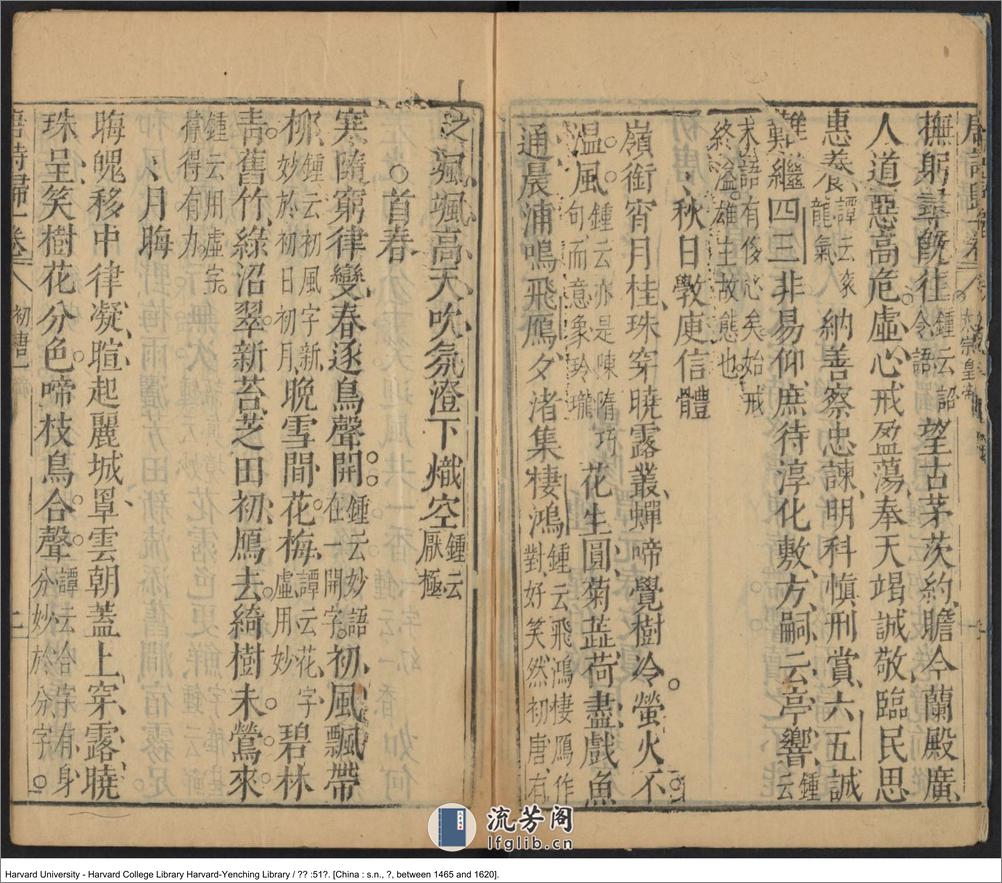 太宗皇帝
撫躬尋既往鍾云詔令語望古茅茨約瞻今蘭殿廣
人道惡高危虛心戒盈蕩奉天竭誠敬臨民思
惠養譚云袞龍氣納善察忠諫明科慎刑賞六五誠
難繼四三非易仰庶待淳化敷方嗣云亭響鍾云
末語有俊心矣始戒
終溢雄主故態也
秋日斆庾信體
嶺銜宵月桂珠穿曉露叢蟬啼覺樹冷螢火不
溫風鍾云亦是陳隋巧句而意象玲瓏花生圓菊蕋荷盡戲魚
通晨浦鳴飛雁夕渚集棲鴻鍾云飛鴻棲雁作對好笑然初唐有
之颯颯高天吹氛澄下熾空鍾云厭極
首春
寒隨窮律變春逐鳥聲開鍾云妙語在一開字初風飄帶
柳鍾云初風字新妙於初日初月晚雪間花梅譚云花字虛用妙碧林
青舊竹綠沼翠新苔芝田初雁去綺樹未鶯來
鍾云用虛字
撐得有力
月晦
晦魄移中律凝暄起麗城罩雲朝蓋上穿露曉
珠呈笑樹花分色啼枝鳥合聲譚云合字有身分妙於分字
唐詩歸卷一 初唐一 二
流芳阁
lfglib.cn
Harvard University - Harvard College Library Harvard-Yenching Library / ?? :51?. [China : s.n., ?, between 1465 and 1620].